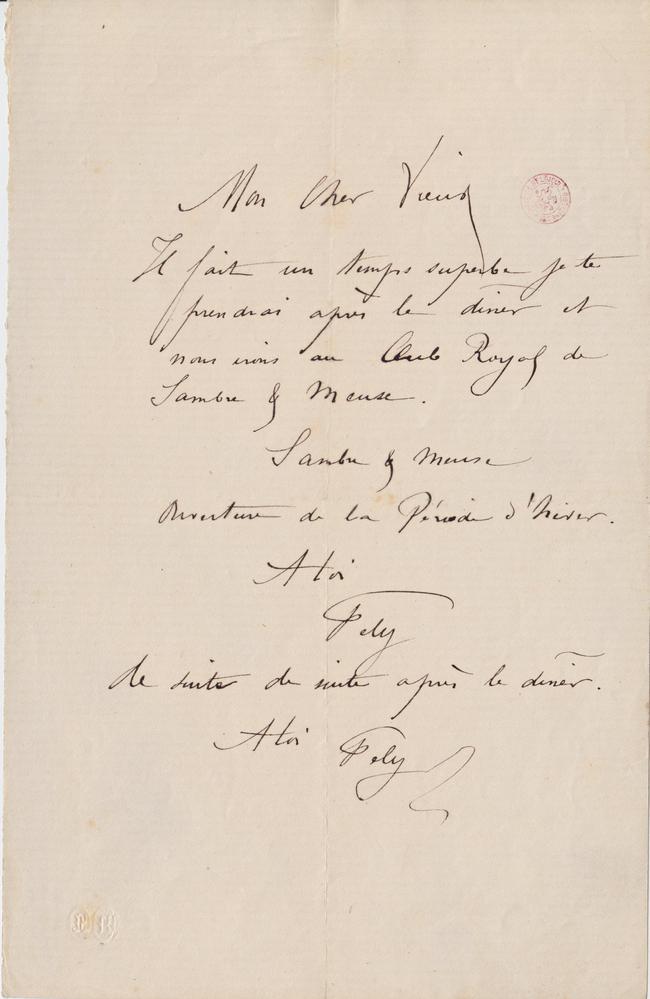 Mon Cher Vieux
Il fait un temps superbe je te
prendrai après le diner et
nous irons au Club Royal de
Sambre & Meuse.
Sambre & Meuse
Ouverture de la Période d'hiver.
A toi
Fely
de suite de suite après le diner.
A toi Fely